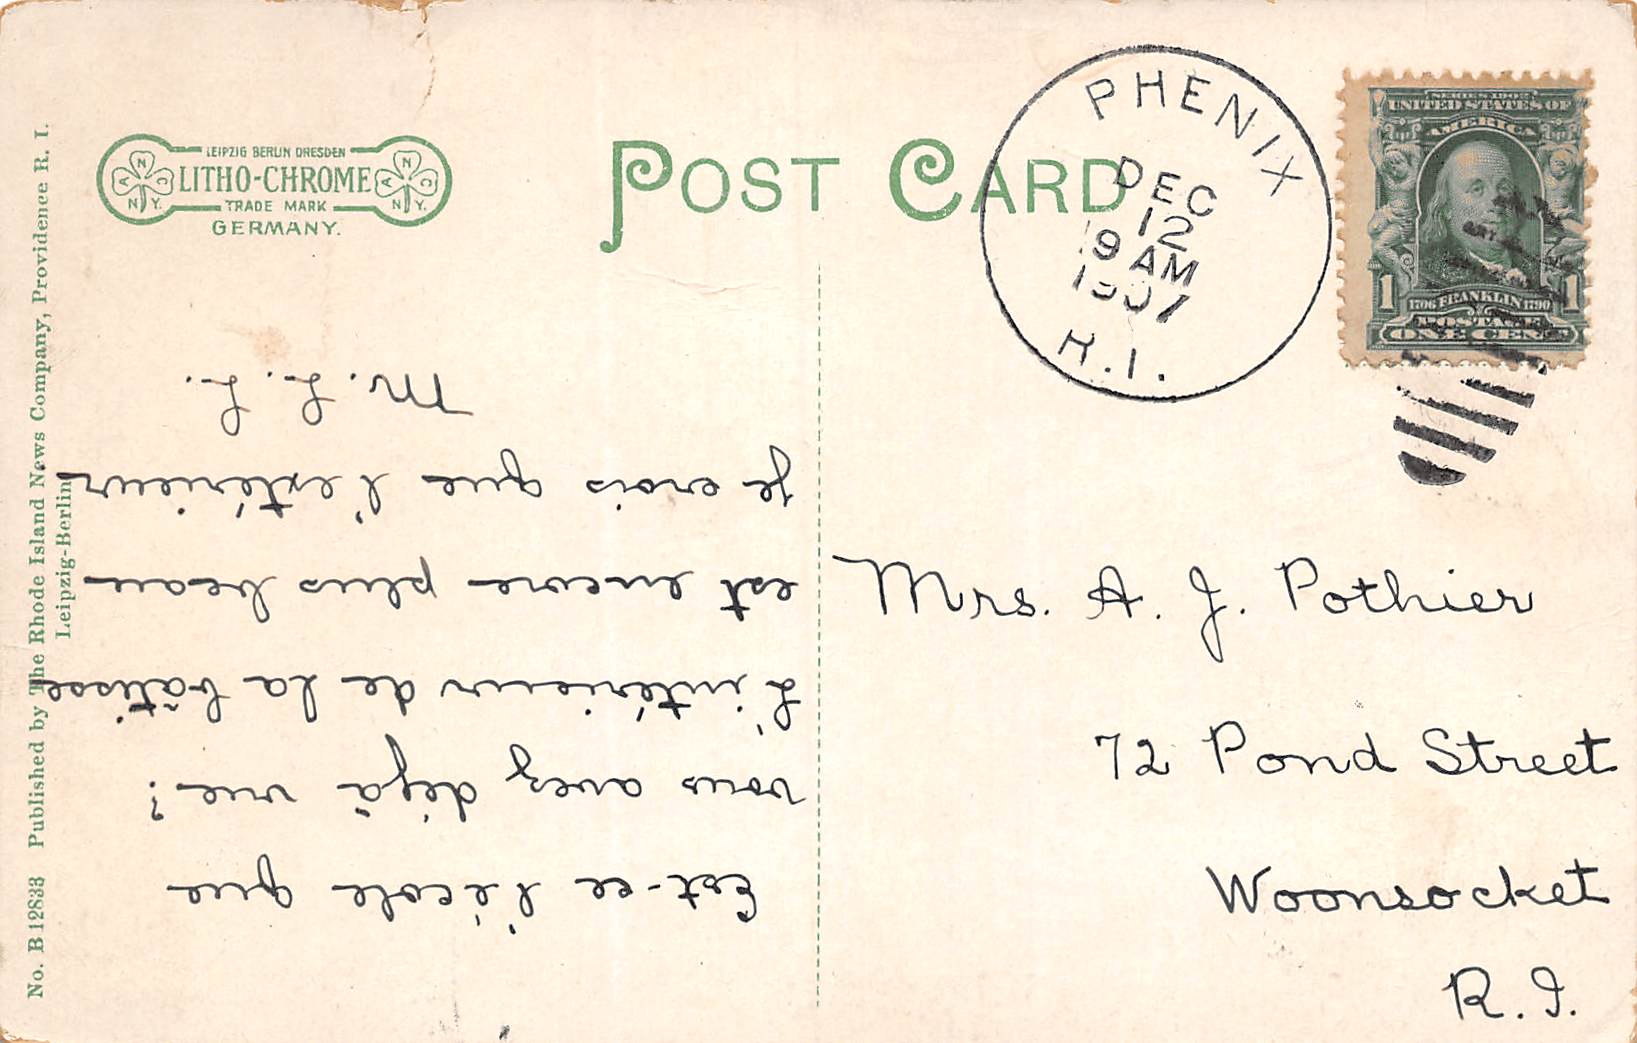 No. B 12833 Published by The Rhode Island News Company, Providence R. I.
Leipzig-Berlin
LEIPZIG BERLIN DRESDEN
LITHO-CHROME
TRADE MARK
GERMANY.
N A C N.Y.
N A C N.Y.
POST CARD
PHENIX
DEC
12
9 AM
1907
R.I.
SERIES 1902
UNITED STATES OF
AMERICA
1 1
1706 FRANKLIN 1790
POSTAGE
ONE CENT
Est-ce l'école que
vous avez déjà vue?
L'intérieur de la bâtisse
est encore plus beau
je crois que l'extérieur
M. L. L.
Mrs. A. J. Pothier
72 Pond Street
Woonsocket
R.I.